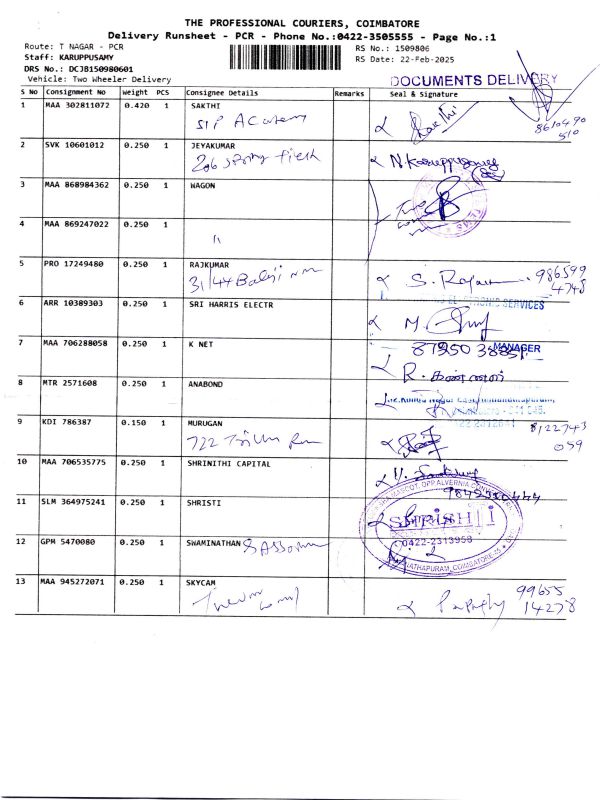 THE PROFESSIONAL COURIERS, COIMBATORE
Delivery Runsheet - PCR - Phone No.:0422-3505555 - Page No.:1
Route: T NAGAR - PCR
RS No.: 1509806
Staff: KARUPPUSAMY
RS Date: 22-Feb-2025
DRS No.: DCJB150980601
Vehicle: Two Wheeler Delivery
DOCUMENTS DELIVERY
S No Consignment No Weight PCS Consignee Details Remarks Seal & Signature
1 MAA 302811072 0.420 1 SAKTHI
SIP Academy
Sakthi
8610490
510
2 SVK 10601012 0.250 1 JEYAKUMAR
206 Spring field
N. Karuppusamy
3 MAA 868984362 0.250 1 WAGON
4 MAA 869247022 0.250 1
"
5 PRO 17249480 0.250 1 RAJKUMAR
31/44 Balaji
S. Rajan
986599
4748
6 ARR 10389303 0.250 1 SRI HARRIS ELECTR
SERVICES
7 MAA 706288058 0.250 1 K NET
MANAGER
8 MTR 2571608 0.250 1 ANABOND
9 KDI 786387 0.150 1 MURUGAN
722
8122743
059
10 MAA 706535775 0.250 1 SHRINITHI CAPITAL
11 SLM 364975241 0.250 1 SHRISTI
0422-2313958
12 GPM 5470080 0.250 1 SWAMINATHAN
13 MAA 945272071 0.250 1 SKYCAM
99655
14278